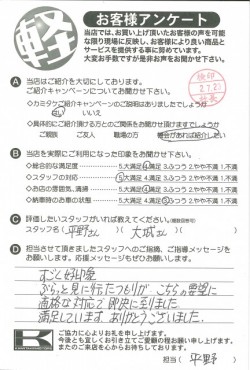 軽
お客様アンケート
当店では、お買い上げ頂いたお客様の声を可能な
限り現場に反映し、お客様により良い商品と
サービスを提供する事に努めています。
大変お手数ですが是非お声をお聞かせ下さい。
検印
A 当店はご紹介を大切にしております。
ご紹介キャンペーンについてお聞かせ下さい。
ご紹介キャンペーンの説明はありましたでしょうか
はい いいえ
具体的にご紹介頂ける方とのご関係をお聞かせ頂けますでしょうか
ご親族 ご友人 職場の方 機会があれば紹介したい
B 当店を実際にご利用になった印象をお聞かせ下さい。
◇総合的な満足度 5.大満足 4.満足 3.ふつう 2.やや不満 1.不満
◇スタッフの対応 5.大満足 4.満足 3.ふつう 2.やや不満 1.不満
◇お店の雰囲気、清掃 5.大満足 4.満足 3.ふつう 2.やや不満 1.不満
◇納車時のお車の状態 5.大満足 4.満足 3.ふつう 2.やや不満 1.不満
C 評価したいスタッフがいれば教えてください。(複数回答可)
スタッフ名( 平野さん )( 大城さん )
D 担当させて頂きましたスタッフへのご指摘、ご指導メッセージを
お願いします。応援メッセージもぜひお願いします。
すごく好印象
ぶらっと見に行ったつもりが こちらの要望に
適格な対応で 即決に到りました
満足しています ありがとうございました.
ご協力に心よりお礼を申し上げます。
今後とも宜しくお引き立てご愛顧の程お願い申し上げます。
またのご来店を心からお待ちしております。
担当( 平野 )